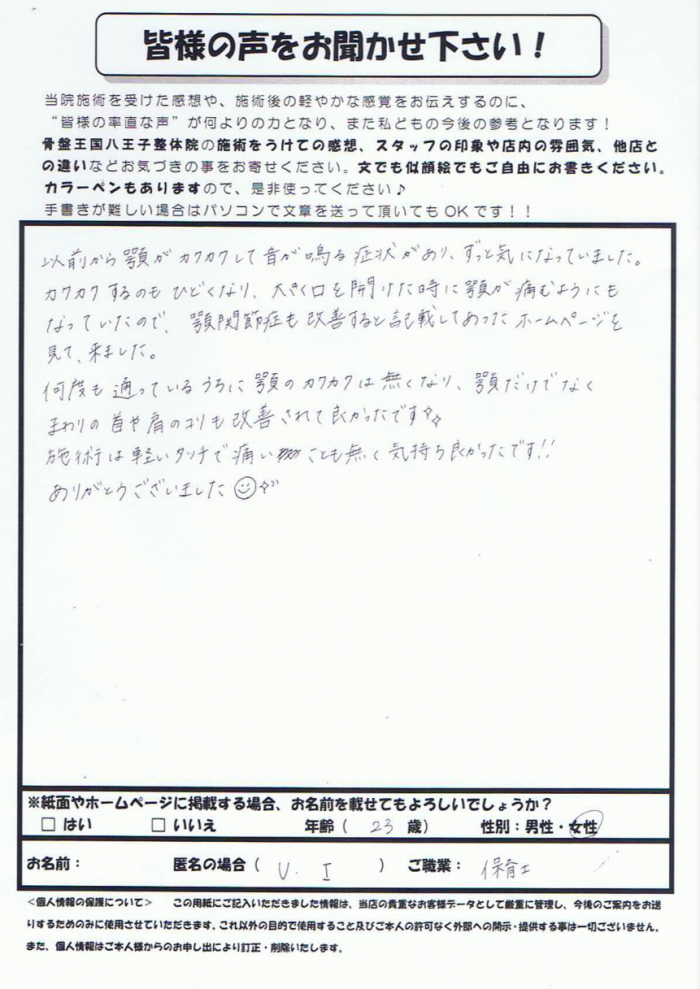 皆様の声をお聞かせ下さい！
当院施術を受けた感想や、施術後の軽やかな感覚をお伝えするのに、
“皆様の率直な声”が何よりの力となり、また私どもの今後の参考となります！
骨盤王国八王子整体院の施術をうけての感想、スタッフの印象や店内の雰囲気、他店と
の違いなどお気づきの事をお寄せください。文でも似顔絵でもご自由にお書きください。
カラーペンもありますので、是非使ってください♪
手書きが難しい場合はパソコンで文章を送って頂いてもOKです！！
以前から顎がカクカクして音が鳴る症状があり、ずっと気になっていました。
カクカクするのもひどくなり、大きく口を開けた時に顎が痛むようにも
なっていたので、顎関節症も改善すると記載してあったホームページを
見て、来ました。
何度も通っているうちに顎のカクカクは無くなり、顎だけでなく
まわりの首や肩のコリも改善されて良かったです
施術は軽いタッチで痛いことも無く気持ち良かったです!!
ありがとうございました
※紙面やホームページに掲載する場合、お名前を載せてもよろしいでしょうか？
□ はい □ いいえ 年齢（ 23 歳） 性別：男性・女性
お名前： 匿名の場合（ U. I ） ご職業： 保育士
＜個人情報の保護について＞ この用紙にご記入いただきました情報は、当店の貴重なお客様データとして厳重に管理し、今後のご案内をお送
りするためのみに使用させていただきます。これ以外の目的で使用すること及びご本人の許可なく外部への開示・提供する事は一切ございません。
また、個人情報はご本人様からのお申し出により訂正・削除いたします。